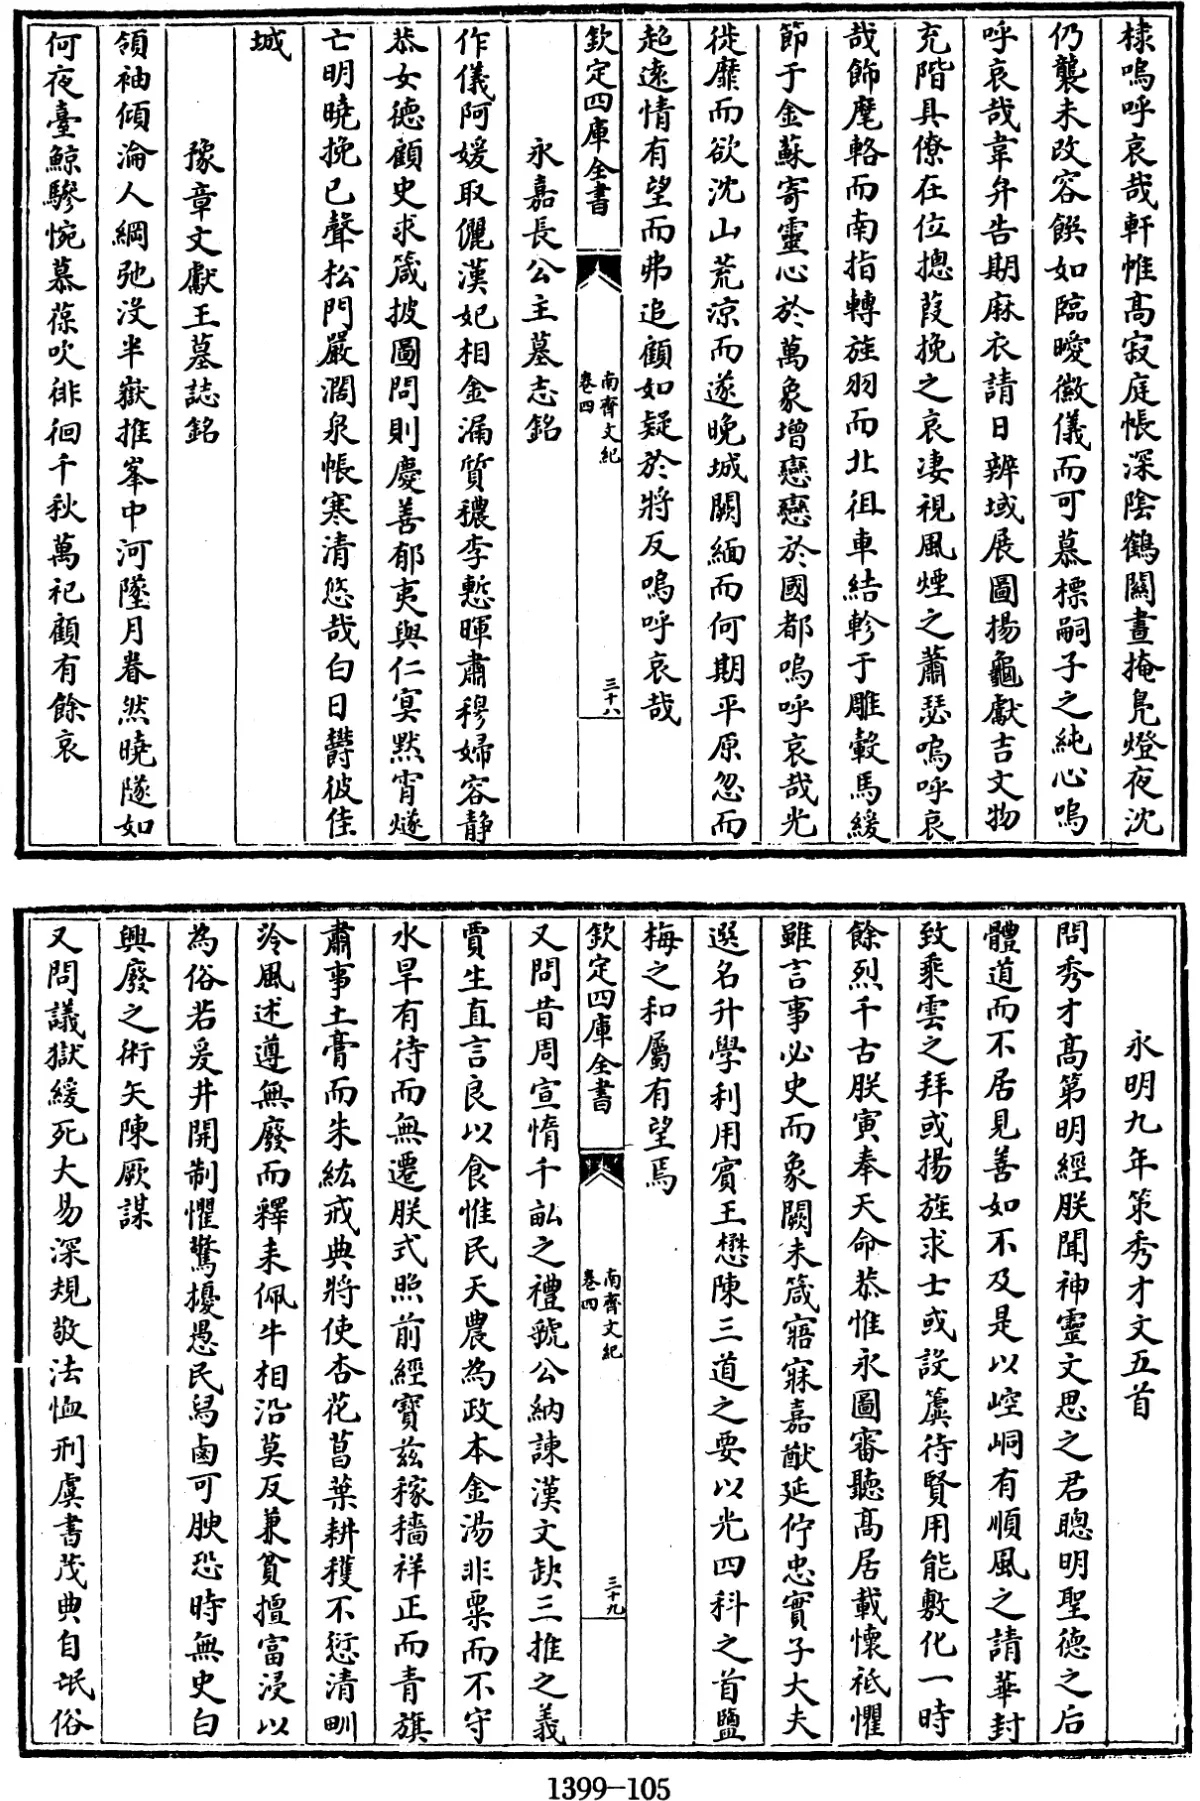 棣嗚呼哀哉軒帷高寂庭帳深陰鶴關晝掩鳧燈夜沈
仍襲未改容饌如臨曖徽儀而可慕標嗣子之純心嗚
呼哀哉韋弁告期麻衣請日辨域展圖揚龜獻吉文物
充階具僚在位摠葭挽之哀凄視風煙之蕭瑟嗚呼哀
哉飾麾輅而南指轉旌羽而北徂車結軫于雕轂馬緩
節于金蘇寄靈心於萬象增戀戀於國都嗚呼哀哉光
徙靡而欲沈山荒涼而遂晚城闕緬而何期平原忽而
超遠情有望而弗追顧如疑於將反嗚呼哀哉
欽定四庫全書
南齊文紀
卷四
三十八
永嘉長公主墓志銘
作儀阿媛取儷漢妃相金漏質穠李慙暉肅穆婦容静
恭女德顧史求箴披圖問則慶善郁夷與仁寞黙宵燧
亡明曉挽已聲松門嚴濶泉帳寒清悠哉白日鬱彼佳
城
豫章文獻王墓誌銘
領袖傾淪人綱弛沒半嶽摧峯中河墜月眷然曉隧如
何夜臺鯨驂惋慕葆吹徘徊千秋萬祀顧有餘哀
永明九年策秀才文五首
問秀才高第明經朕聞神靈文思之君聰明聖德之后
體道而不居見善如不及是以崆峒有順風之請華封
致乘雲之拜或揚旌求士或設簴待賢用能敷化一時
餘烈千古朕寅奉天命恭惟永圖審聽高居載懷祇懼
雖言事必史而象闕未箴寤寐嘉猷延佇忠實子大夫
選名升學利用賓王懋陳三道之要以光四科之首鹽
梅之和屬有望焉
欽定四庫全書
南齊文紀
卷四
三十九
又問昔周宣惰千畝之禮虢公納諫漢文缺三推之義
賈生直言良以食惟民天農為政本金湯非粟而不守
水旱有待而無遷朕式照前經寶兹稼穡祥正而青旗
肅事土膏而朱紘戒典將使杏花菖葉耕穫不愆清甽
泠風述遵無廢而釋耒佩牛相沿莫反兼貧擅富浸以
為俗若爰井開制懼驚擾愚民舄鹵可腴恐時無史白
興廢之術矢陳厥謀
又問議獄緩死大易深規敬法恤刑虞書茂典自氓俗
1399-105